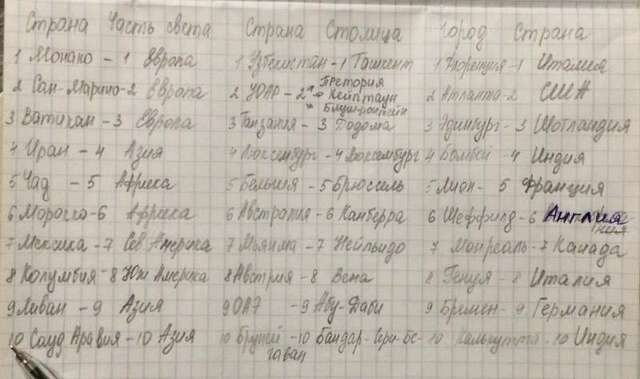 Страна Часть света Страна Столица Город Страна
1 Монако - 1 Европа 1 Узбекистан - 1 Ташкент 1 Флоренция - 1 Италия
2 Сан-Марино - 2 Европа 2 ЮАР - 2 Претория Кейптаун Блумфонтейн 2 Атланта - 2 США
3 Ватикан - 3 Европа 3 Танзания - 3 Додома 3 Эдинбург - 3 Шотландия
4 Иран - 4 Азия 4 Люксембург - 4 Люксембург 4 Бомбей - 4 Индия
5 Чад - 5 Африка 5 Бельгия - 5 Брюссель 5 Лион - 5 Франция
6 Марокко - 6 Африка 6 Австралия - 6 Канберра 6 Шеффилд - 6 Англия
7 Мексика - 7 Сев. Америка 7 Мьянма - 7 Нейпьидо 7 Монреаль - 7 Канада
8 Колумбия - 8 Юж Америка 8 Австрия - 8 Вена 8 Генуя - 8 Италия
9 Ливан - 9 Азия 9 ОАЭ - 9 Абу-Даби 9 Бремен - 9 Германия
10 Сауд Аравия - 10 Азия 10 Бруней - 10 Бандар-Сери-Бе- 10 Калькутта - 10 Индия
гаван